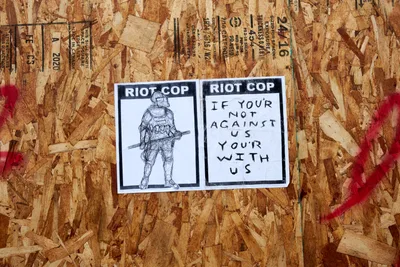 RIOT COP
RIOT COP
IF YOU'R
NOT
AGAINST
US
YOU'R
WITH
US
24/16